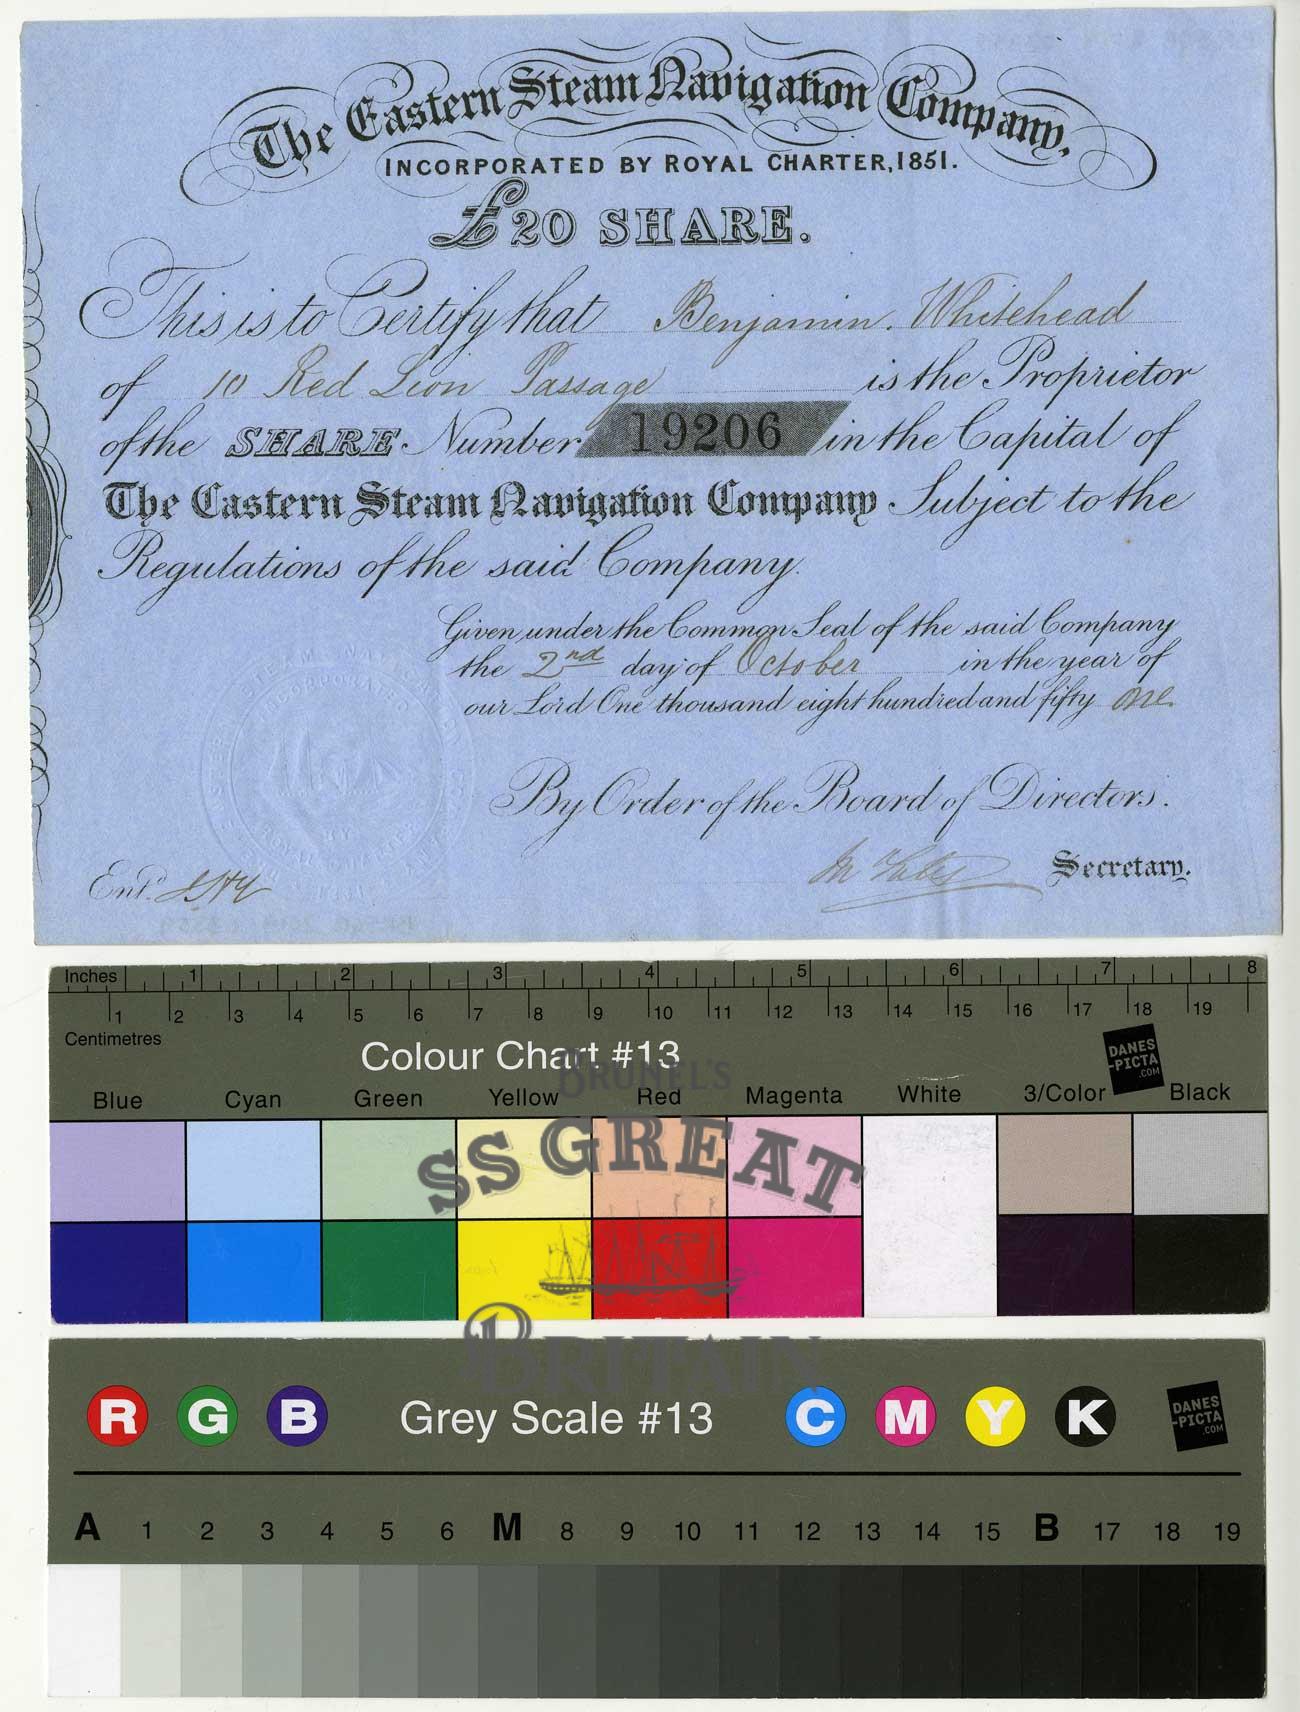 The Eastern Steam Navigation Company,
INCORPORATED BY ROYAL CHARTER, 1851.
£20 SHARE.
This is to Certify that Benjamin. Whitehead
of 10 Red Lion Passage is the Proprietor
of the SHARE Number 19206 in the Capital of
The Eastern Steam Navigation Company Subject to the
Regulations of the said Company.
Given under the Common Seal of the said Company
the 2nd day of October in the year of
our Lord One thousand eight hundred and fifty one
By Order of the Board of Directors.
Secretary.
Entd.
Inches 1 2 3 4 5 6 7 8
1 2 3 4 5 6 7 8 9 10 11 12 13 14 15 16 17 18 19
Centimetres
Colour Chart #13
DANES
-PICTA
.COM
Blue Cyan Green Yellow Red Magenta White 3/Color Black
BRUNEL'S
SS GREAT
BRITAIN
R G B Grey Scale #13 C M Y K
DANES
-PICTA
.COM
A 1 2 3 4 5 6 M 8 9 10 11 12 13 14 15 B 17 18 19